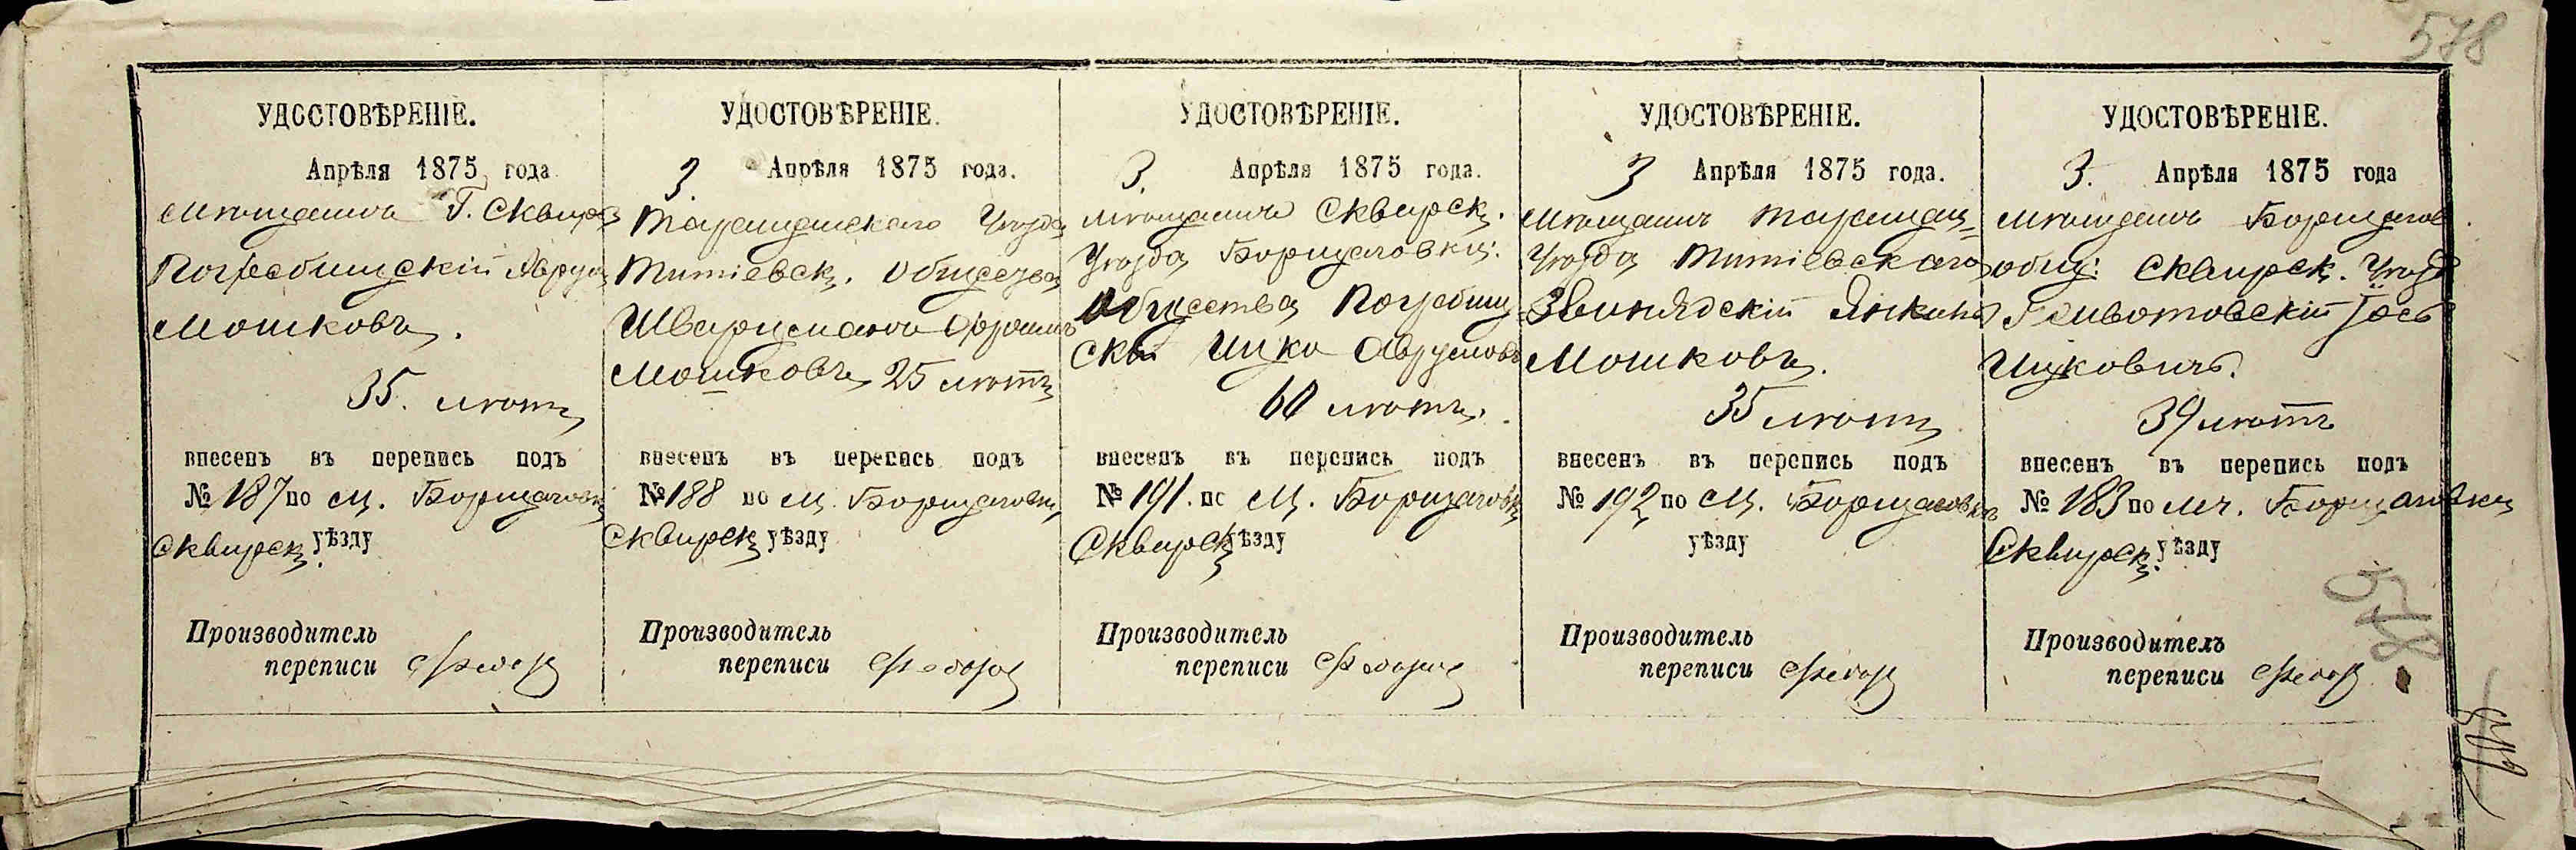 578
УДОСТОВѢРЕНІЕ.
Апрѣля 1875 года
Мѣщанинъ Г. Сквиры
Погребищскій Аврум
Мошковъ.
35. лѣтъ
внесенъ въ перепись подъ
№ 187 по м. Борщаговк
Сквирск. уѣзду
Производитель
переписи
УДОСТОВѢРЕНІЕ.
3. Апрѣля 1875 года.
Таращанскаго Уѣзда
Тетіевск. Общества
Шварцманъ Фроимъ
Мошковъ 25 лѣтъ
внесенъ въ перепись подъ
№ 188 по м. Борщаговк
Сквирск уѣзду
Производитель
переписи
УДОСТОВѢРЕНІЕ.
3. Апрѣля 1875 года.
Мѣщанинъ Сквирск.
Уѣзда Борщаговкц:
Общества Погребищ
скій Ицко Аврумовъ
60 лѣтъ.
внесенъ въ перепись подъ
№ 191. по М. Борщаговк
Сквирск уѣзду
Производитель
переписи
УДОСТОВѢРЕНІЕ.
3 Апрѣля 1875 года.
Мѣщанинъ Таращан=
Уѣзда Тетіевскаго
Звинядскій Янкель
Мошковъ.
35 лѣтъ
внесенъ въ перепись подъ
№ 192 по м. Борщаговкѣ
уѣзду
Производитель
переписи
УДОСТОВѢРЕНІЕ.
3. Апрѣля 1875 года
Мѣщанинъ Борщагов
общ: Сквирск. Уѣзда
Животовскій Іось
Ицковичъ.
39 лѣтъ
внесенъ въ перепись подъ
№ 183 по мч. Борщаговки
Сквирск. уѣзду
Производитель
переписи
578